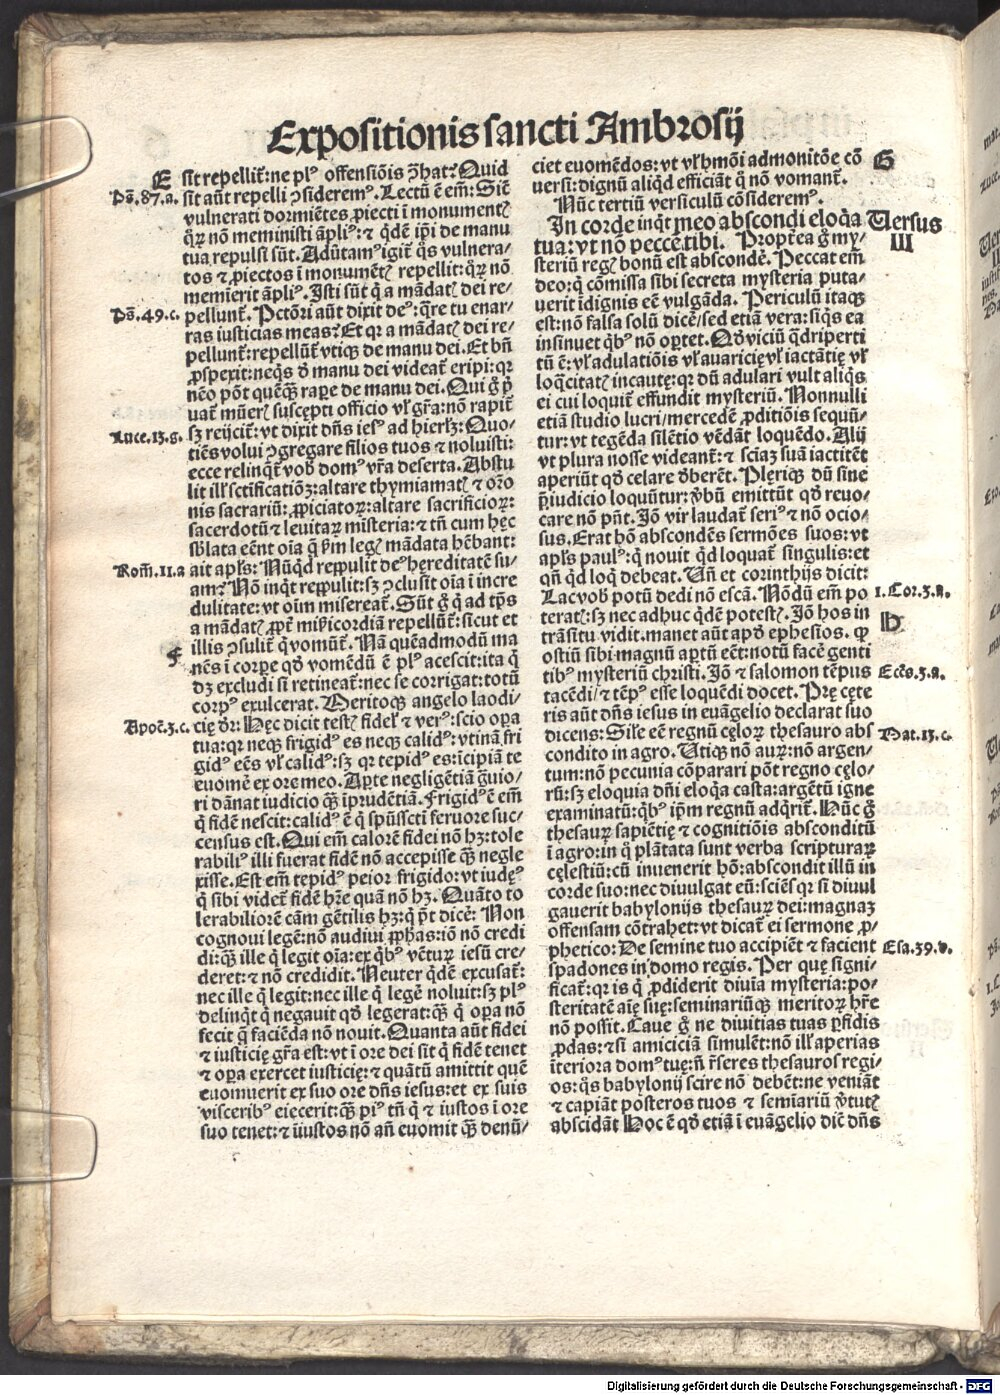 Expositionis sancti Ambrosij
E
sit repellit᷑:ne plꝰ offensiõis p̃hat?Quid
Ps̃.87.a.
sit aũt repelli ↄsideremꝰ. Lectũ ẽ em̃: Siẽ
vulnerati dormiẽtes ꝓiecti ĩ monumentꝭ
q̃ꝝ nõ meministi ãpliꝰ: ⁊ q̃dẽ ip̃i de manu
tua repulsi sũt. Adũtamꝰ igit᷑ q̃s vulnera⸗
tos ⁊ ꝓiectos ĩ monumẽtꝭ repellit:q̃ꝝ nõ
memierit ãpliꝰ. Isti sũt q̃ a mãdatꝭ dei re⸗
Ps̃.49.c.
pellunt᷑. Pctõri aũt dixit deꝰ: q̃re tu enar⸗
ras iusticias meas? Et qꝛ a mãdatꝭ dei re⸗
pellunt᷑:repellũt᷑ vtiqꝫ de manu dei. Et bñ
ꝓspexit:neqͥs ð manu dei videat᷑ eripi: qꝛ
nẽo põt quẽqꝫ̃ rape de manu dei. Qui g̊ p̃
uat᷑ mũerꝭ suscepti officio vl̓ gr̃a: nõ rapit᷑
Luce.13.g.
sꝫ reijcit᷑: vt dixit dñs iesꝰ ad hierl̓ꝫ: Quo⸗
tiẽs volui ↄgregare filios tuos ⁊ noluisti:
ecce relinqt᷑ vob̓ domꝰ vr̃a deserta. Abstu
lit ill̓ sctificatiõꝫ:altare thymiamatꝭ ⁊ orõ
nis sacrariũ: ꝓpiciatoꝝ: altare sacrificioꝝ:
sacerdotũ ⁊ leuitaꝝ misteria: ⁊ tñ cum hęc
sb̓lata eẽnt oĩa q̃ p̃m legꝭ mãdata hẽbant:
Rom̃.11.a
ait apl̓s: Nũqd repulit deꝰ hereditatẽ su⸗
am? Nõ inqt repulit:sꝫ ↄclusit oĩa ĩ incre
dulitate: vt oĩm misereat᷑. Sũt g̊ q̃ ad tp̃s
a mãdatꝭ ꝓpt᷑ mi᷑icordiã repellũt᷑: sicut et
F
illis ↄsulit᷑ q̃ vomũt᷑. Nã quẽadmodũ ma
nẽs ĩ corpe qð vomẽdũ ẽ plꝰ acescit:ita q̃
dꝫ excludi si retineat᷑: nec se corrigat: totũ
corpꝰ exulcerat. Meritoqꝫ angelo laodi⸗
Apoc̃.3.c.
cię dr̃: Hęc dicit testꝭ fidel̓ ⁊ verꝰ: scio opa
tua: qꝛ neqꝫ frigidꝰ es neqꝫ calidꝰ: vtinã fri
gidꝰ eẽs vl̓ calidꝰ: sꝫ qꝛ tepidꝰ es: icipiã te
euomẽ ex ore meo. Apte negligẽtiã g̃uio⸗
ri dãnat iudicio qꝫ̃ ĩprudẽtiã. Frigidꝰ ẽ em̃
q̃ fidẽ nescit: calidꝰ ẽ q̃ spũsscti feruore suc⸗
census est. Qui em̃ calorẽ fidei nõ hꝫ: tole
rabiliꝰ illi fuerat fidẽ nõ accepisse qꝫ̃ negle
xisse. Est em̃ tepidꝰ peior frigido: vt iudęꝰ
q̃ sibi videt᷑ fidẽ hr̃e quã nõ hꝫ. Quãto to
lerabiliorẽ cãm gẽtilis hꝫ: q̃ p̃t dicẽ: Non
cognoui legẽ: nõ audiui ꝓphas: iõ nõ credi
di: qꝫ̃ ille q̃ legit oĩa: ex qͥbꝰ vẽtuꝝ iesũ cre⸗
deret: ⁊ nõ credidit. Neuter q̃dẽ excusat᷑:
nec ille q̃ legit: nec ille q̃ legẽ noluit: sꝫ plꝰ
delinqt q̃ negauit qð legerat: qꝫ̃ q̃ opa nõ
fecit q̃ faciẽda nõ nouit. Quanta aũt fidei
⁊ iusticię gr̃a est: vt ĩ ore dei sit q̃ fidẽ tenet
⁊ opa exercet iusticię: ⁊ quãtũ amittit quẽ
euomuerit ex suo ore dñs iesus: et ex suis
visceribꝰ eiecerit: qꝫ̃ piꝰ tñ q̃ ⁊ iustos ĩ ore
suo tenet: ⁊ ĩiustos nõ añ euomit qꝫ̃ denũ⸗
G
ciet euomẽdos: vt vl̓ hmõi admonitõe cõ
uersi: dignũ aliqd efficiãt q̊ nõ vomant᷑.
Nũc tertiũ versiculũ cõsideremꝰ.
Versus
III
In corde inqt meo abscondi eloq̃a
tua: vt nõ peccẽ tibi. Propt᷑ea g̊ my⸗
steriũ regꝭ bonũ est abscondẽ. Peccat em̃
deo: q̃ cõmissa sibi secreta mysteria puta⸗
uerit ĩdignis eẽ vulgãda. Periculũ itaqꝫ
est: nõ falsa solũ dicẽ/ sed etiã vera: siqͥs ea
insinuet qͥbꝰ nõ oportet. Qð viciũ q̃driperti
tũ ẽ: vl̓ adulatiõis vl̓ auaricię vl̓ iactãtię vl̓
loq̃citatꝭ incautę: qꝛ dũ adulari vult aliqͥs
ei cui loquit᷑ effundit mysteriũ. Nonnulli
etiã studio lucri/ mercedẽ ꝓditiõis sequũ⸗
tur: vt tegẽda silẽtio vẽdãt loquẽdo. Alij
vt plura nosse videant᷑: ⁊ sciaꝫ suã iactitẽt
aperiũt qð celare ðberẽt. Plęriqꝫ dũ sine
p̃iudicio loquũtur: ṽbũ emittũt qð reuo⸗
care nõ pñt. Iõ vir laudat᷑ seriꝰ ⁊ nõ ocio⸗
sus. Erat hõ abscondẽs sermões suos: vt
apl̓s paulꝰ: q̃ nouit qd loquat᷑ singulis: et
qñ qd loq̃ debeat. Vñ et corinthijs dicit:
1.Cor.3.a.
Lac vob̓ potũ dedi nõ escã. Nõdũ em̃ po
teratꝭ: sꝫ nec adhuc q̃dẽ potestꝭ. Iõ hos in
H
trãsitu vidit. manet aũt apð ephesios. qꝛ
ostiũ sibi magnũ aptũ eẽt: notũ facẽ genti
Ecc̃s.3.a.
tibꝰ mysteriũ christi. Iõ ⁊ salomon tẽpus
tacẽdi/ ⁊ tẽpꝰ esse loquẽdi docet. Prę cęte
ris aũt dñs iesus in euãgelio declarat suo
Mat.13.c.
dicens: Sil̓e eẽ regnũ cęloꝝ thesauro abs
condito in agro. Utiqꝫ nõ auꝝ: nõ argen⸗
tum: nõ pecunia cõparari põt regno cęlo⸗
rũ: sꝫ eloquia dñi eloq̃a casta: argẽtũ igne
examinatũ: qͥbꝰ ip̃m regnũ adq̃rit᷑. Nũc g̊
thesauꝝ sapiẽtię ⁊ cognitiõis absconditũ
ĩ agro: in q̊ plãtata sunt verba scripturaꝝ
cęlestiũ: cũ inuenerit hõ: abscondit illũ in
corde suo: nec diuulgat eũ: sciẽs qꝛ si diuul
gauerit babylonijs thesauꝝ dei: magnaꝫ
offensam cõtrahet: vt dicat᷑ ei sermone ꝓ⸗
Esa.39.v.
phetico: De semine tuo accipiẽt ⁊ facient
spadones in domo regis. Per quę signi⸗
ficat᷑: qꝛ is q̃ ꝓdiderit diuĩa mysteria: po⸗
steritatẽ aĩę suę: seminariũqꝫ meritoꝝ hr̃e
nõ possit. Caue g̊ ne diuitias tuas pfidis
ꝓdas: ⁊ si amiciciã simulẽt: nõ ill̓ aperias
ĩteriora domꝰ tuę: ñ r̃seres thesauros regi⸗
os: q̃s babylonij scire nõ debẽt: ne veniãt
⁊ capiãt posteros tuos ⁊ semĩariũ ṽtutꝭ
abscidãt Hoc ẽ qð etiã ĩ euãgelio dic̃ dñs
Digitalisierung gefördert durch die Deutsche Forschungsgemeinschaft - DFG